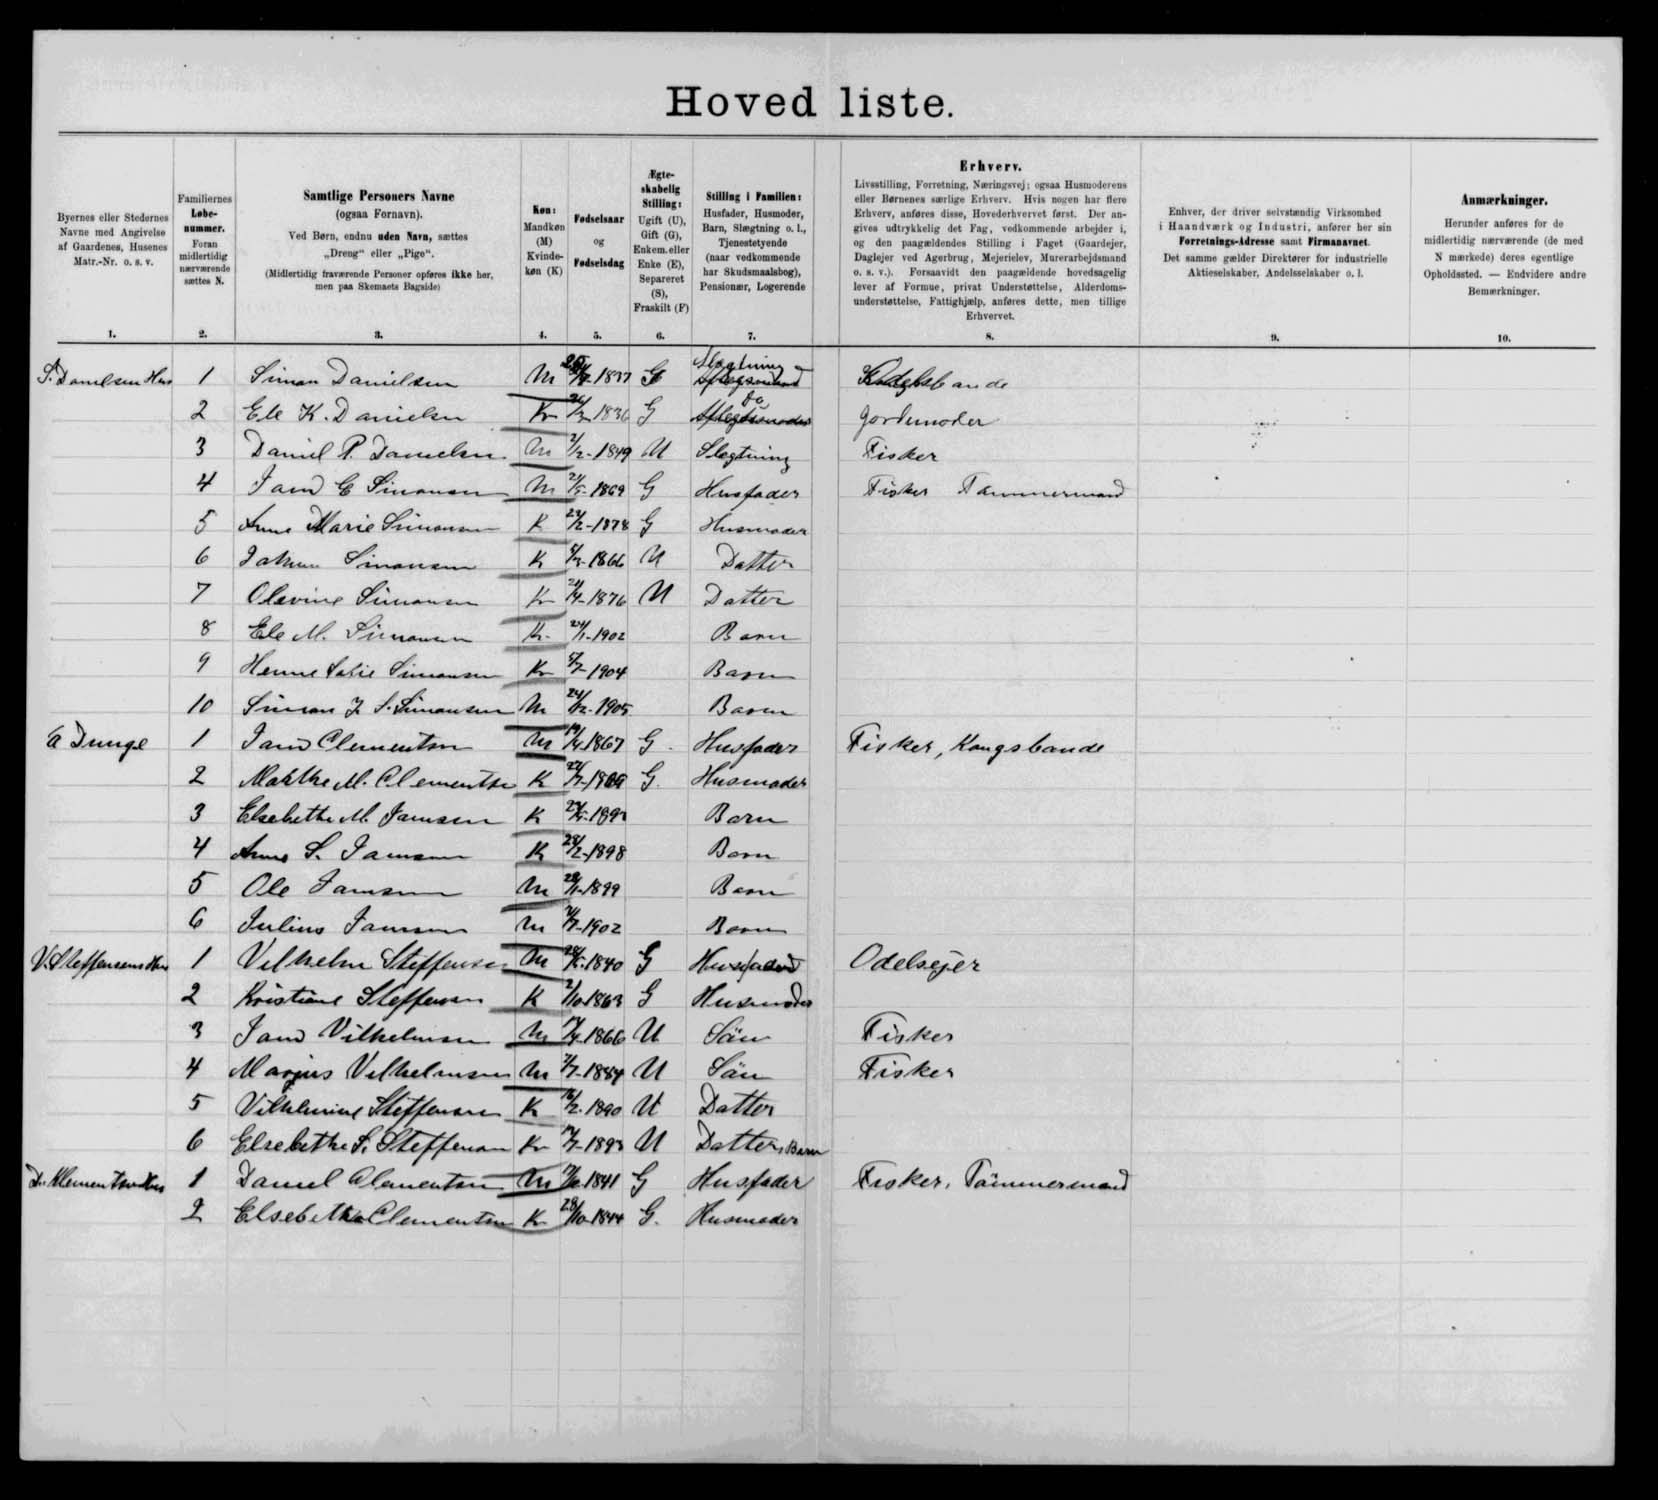 Hoved liste.
Byernes eller Stedernes
Navne med Angivelse
af Gaardenes, Husenes
Matr.-Nr. o. s. v.
1.
Familiernes
Løbe-
nummer.
Foran
midlertidig
nærværende
sættes N.
2.
Samtlige Personers Navne
(ogsaa Fornavn).
Ved Børn, endnu uden Navn, sættes
„Dreng“ eller „Pige“.
(Midlertidig fraværende Personer opføres ikke her,
men paa Skemaets Bagside)
3.
Køn:
Mandkøn
(M)
Kvinde-
køn (K)
4.
Fødselsaar
og
Fødselsdag
5.
Ægte-
skabelig
Stilling:
Ugift (U),
Gift (G),
Enkem. eller
Enke (E),
Separeret
(S),
Fraskilt (F)
6.
Stilling i Familien:
Husfader, Husmoder,
Barn, Slægtning o. l.,
Tjenestetyende
(naar vedkommende
har Skudsmaalsbog),
Pensionær, Logerende
7.
Erhverv.
Livsstilling, Forretning, Næringsvej; ogsaa Husmoderens
eller Børnenes særlige Erhverv. Hvis nogen har flere
Erhverv, anføres disse, Hovederhvervet først. Der an-
gives udtrykkelig det Fag, vedkommende arbejder i,
og den paagældendes Stilling i Faget (Gaardejer,
Daglejer ved Agerbrug, Mejerielev, Murerarbejdsmand
o. s. v.). Forsaavidt den paagældende hovedsagelig
lever af Formue, privat Understøttelse, Alderdoms-
understøttelse, Fattighjælp, anføres dette, men tillige
Erhvervet.
8.
Enhver, der driver selvstændig Virksomhed
i Haandværk og Industri, anfører her sin
Forretnings-Adresse samt Firmanavnet.
Det samme gælder Direktører for industrielle
Aktieselskaber, Andelsselskaber o. l.
9.
Anmærkninger.
Herunder anføres for de
midlertidig nærværende (de med
N mærkede) deres egentlige
Opholdssted. — Endvidere andre
Bemærkninger.
10.
S. Danielsen Hus 1 Simon Danielsen M 1837 G Slægtning
2 Ele K. Danielsen K 1836 G Do Jordemoder
3 Daniel P. Danielsen M 2/2-1849 U Slegtning Fisker
4 C Simonsen M 1869 G Husfader Fisker Tømmermand
5 Anne Marie Simonsen K 1878 G Husmoder
6 Simonsen K 1866 U Datter
7 Olevine Simonsen K 1876 U Datter
8 Ele M. Simonsen K 24/1-1902 Barn
9 Simonsen K 1904 Barn
10 Simon J. S. Simonsen M 1905 Barn
1 Clementsen M 1867 G. Husfader Fisker, Kongsbonde
2 M. Clementsen K G. Husmoder
3 Elsebethe M. K Barn
4 S. K 28/2-1898 Barn
5 Ole M 1899 Barn
6 Julius M 1902 Barn
V. Steffensens Hus 1 Vilhelm Steffensen M 1840 G Husfader Odelsejer
2 Kristiane Steffensen K 2/10-1863 G Husmoder
3 Vilhelmsen M 1866 U Sön Fisker
4 Marjus Vilhelmsen M 1884 U Sön Fisker
5 Vilhelmine Steffensen K 1890 U Datter
6 Elsebethe S. Steffensen K 1893 U Datter, Barn
D. Klementsens Hus 1 Daniel Clementsen M 1841 G Husfader Fisker, Tömmermand
2 Elsebetha Clementsen K 28/10-1844 G. Husmoder